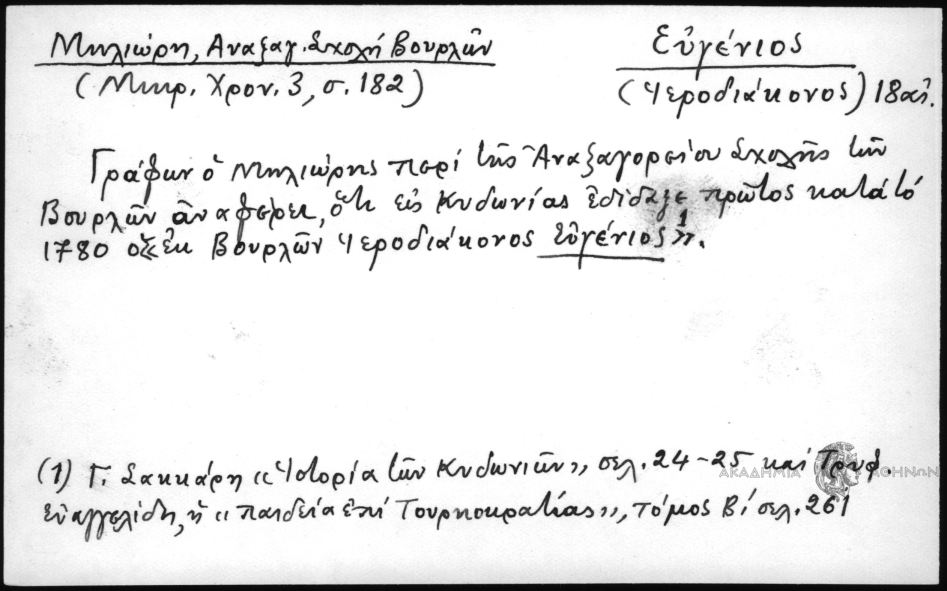 Μηλιώρη, Αναξαγ. Σχολή Βουρλῶν
(Μικρ. Χρον. 3, σ. 182)
Εὐγένιος
(Ἱεροδιάκονος) 18 αἰ.
Γράφων ὁ Μηλιώρης περί τῆς Ἀναξαγορείου Σχολῆς τῶν
Βουρλῶν ἀναφέρει, ὅτι εἰς Κυδωνίας ἐδίδαξε πρῶτος κατά τό
1780 ὁ «ἐκ Βουρλῶν Ἱεροδιάκονος Εὐγένιος»1.
(1) Γ. Σακκάρη «Ἱστορία τῶν Κυδωνιῶν», σελ. 24-25 καί Τρυφ.
Εὐαγγελίδη, ἡ «παιδεία ἐπί Τουρκοκρατίας», τόμος Β΄ σελ. 261
ΑΚΑΔΗΜΙΑ ΑΘΗΝΩΝ